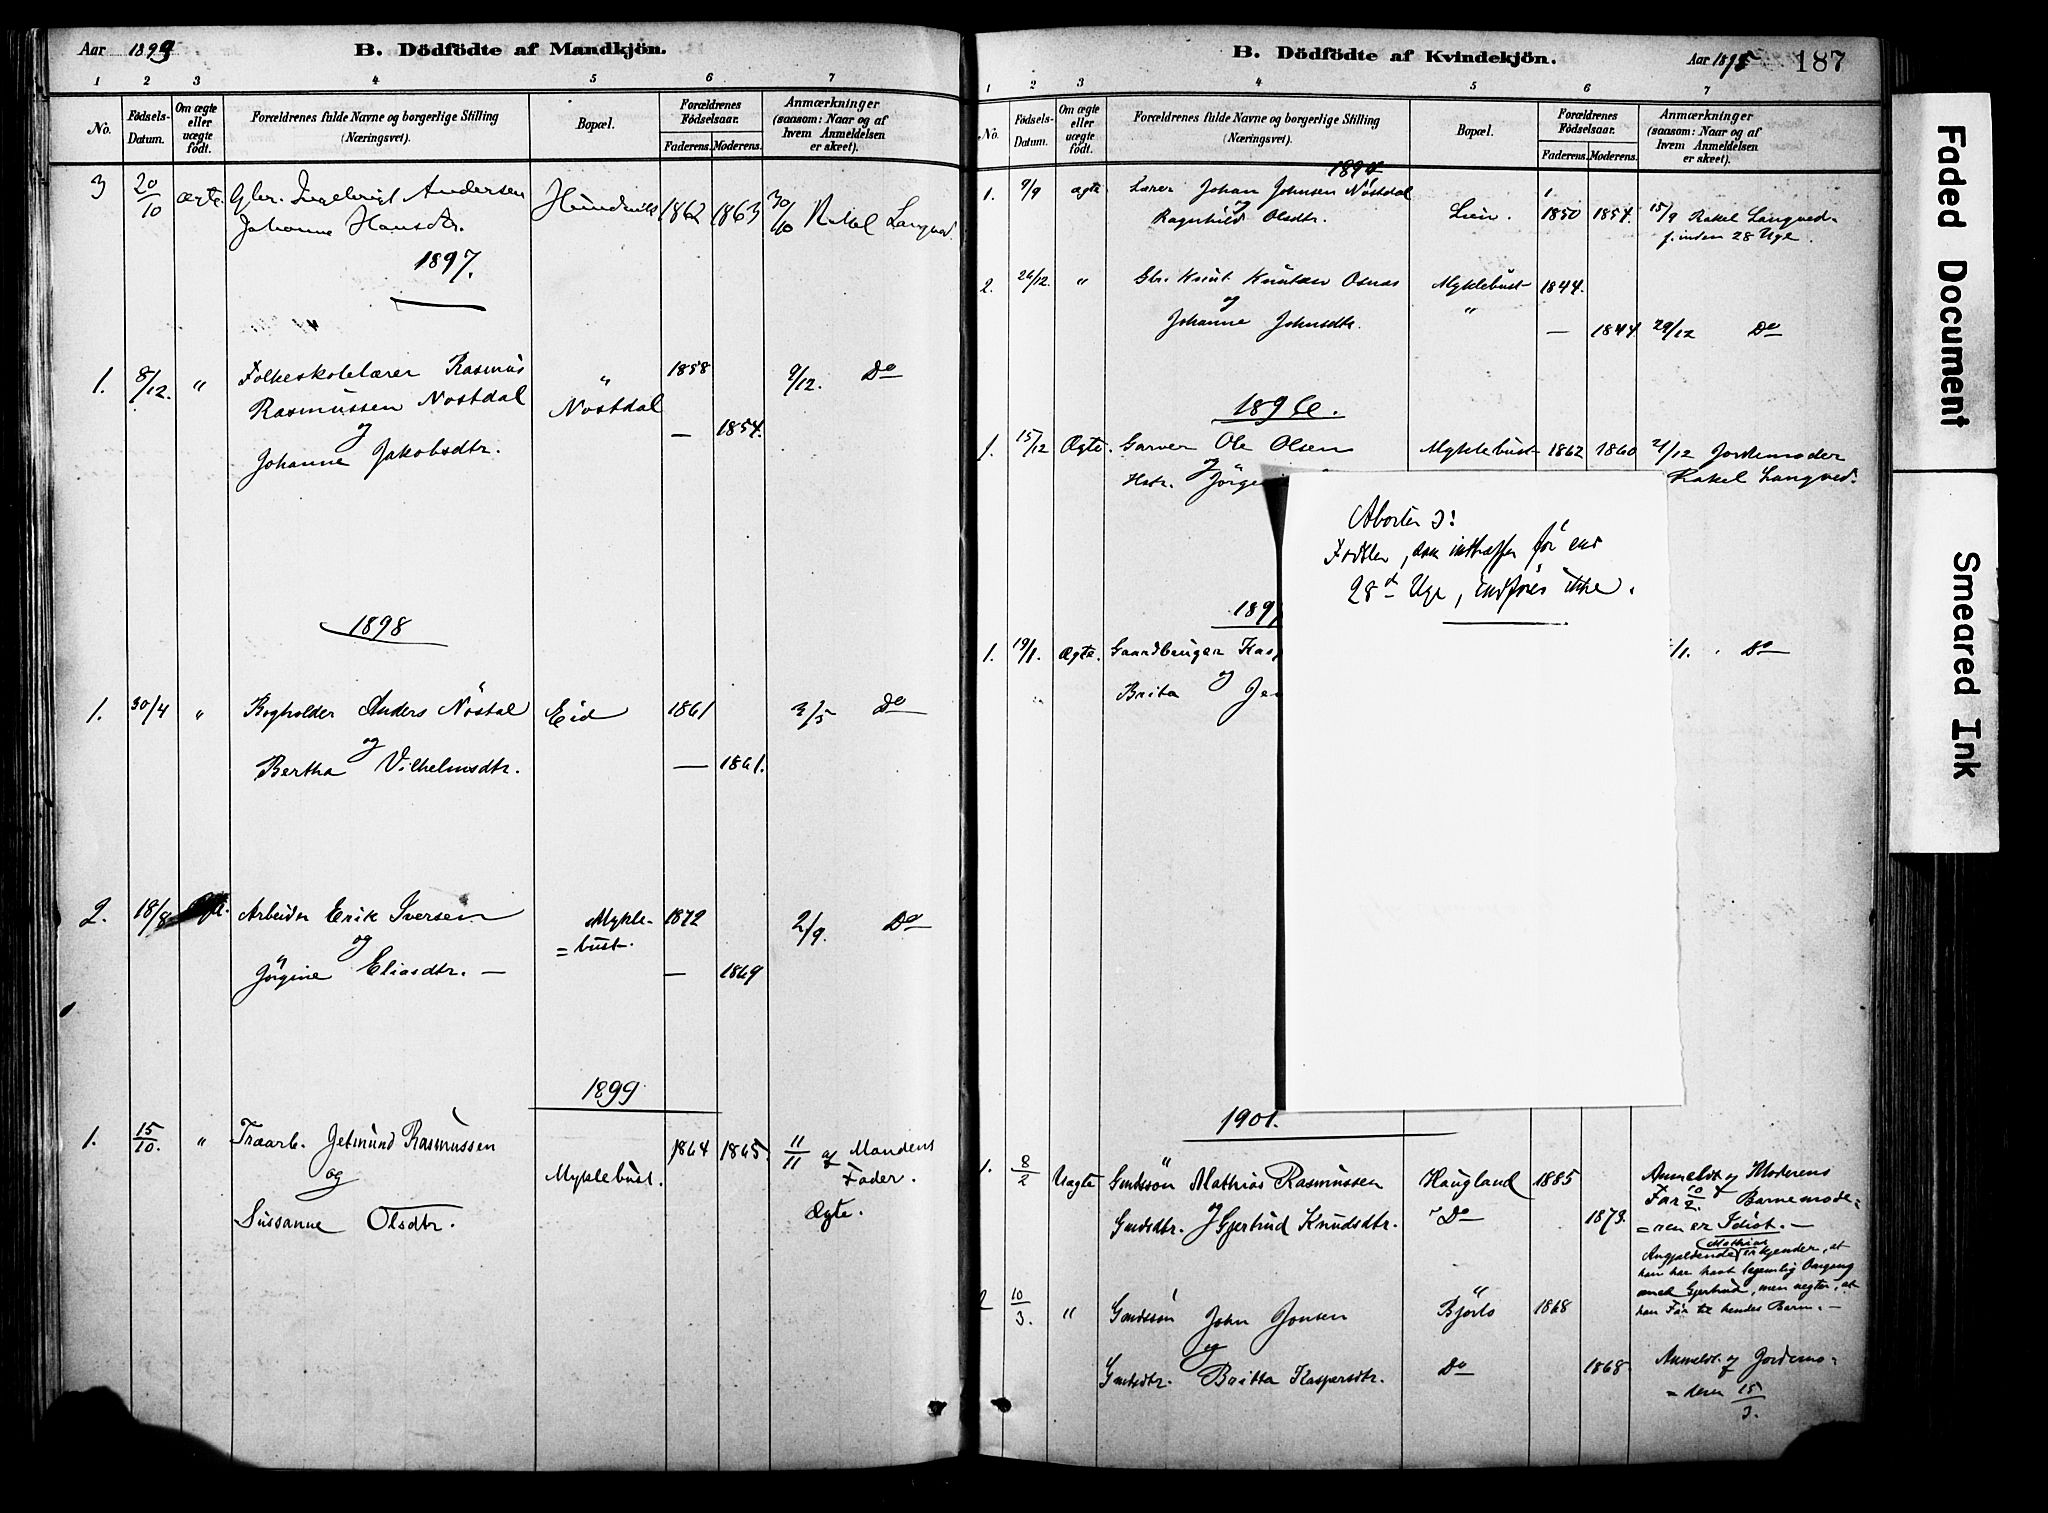 Aar 1899
B. Dödfödte af Mandkjön.
1 2 3 4 5 6 7
No.
Födsels-Datum.
Om ægte eller uægte födt.
Forældrenes fulde Navne og borgerlige Stilling
(Næringsvei).
Bopæl.
Forældrenes Födselsaar.
Faderens. Moderens.
Anmærkninger
(saasom: Naar og af
hvem Anmeldelsen
er skeet).
3 20/10 ægte Gbr. Ingebrigt Andersen 1862 1863 30/10 Rakel Langved
Johanne Hansdtr.
1897.
1. 8/12. " Folkeskolelærer Rasmus " 1858 9/12. Do
Rasmussen Nostdal Nostdal
og — 1854.
Johanne Jakobsdtr.
1898
1. 30/4 " Anders Nöstal Eid 1861 3/5 Do
og
Bertha Vilhelmsdtr. — 1861.
2. 18/8 Arbeider Erik Iversen Mykle- 1872 2/9. Do
og =bust.
Jörgine Eliasdtr. — — 1869
1899
1. 15/10. " Træarb. Jetmund Rasmussen 1864 1865. 11/11 af Mandens
og Myklebust. Fader.
Susanne Olsdtr. Ægte.
B. Dödfödte af Kvindekjön.
Aar 1895 187
1 2 3 4 5 6 7
No.
Födsels-Datum.
Om ægte eller uægte födt.
Forældrenes fulde Navne og borgerlige Stilling
(Næringsvei).
Bopæl.
Forældrenes Födselsaar.
Faderens. Moderens.
Anmærkninger
(saasom: Naar og af
hvem Anmeldelsen
er skeet).
1. 9/9 ægte Lærer Johan Johnsen Nöstdal
og Lien. 1850 1854. 15/9 Rakel Langved
Ragnhild Olsdtr. f. inden 28 Uge.
2. 26/12. " Gbr. Knut Knutsen Osnes Myklebust 1844.
og "
Johanne Johnsdtr. — 1844 29/12 Do
1896.
1. 15/12 Ægte. Garver Ole Olsen Myklebust 1862 1860 21/12 Jordemoder
og
Hstr. Jörge Rakel Langved.
Aborter ɔ:
Födsler, som indtræffer för end
28d Uge, indføres ikke.
189
1. 19/1. Ægte. Gaardbruger Kasp /1. Do
og
Brita Je
1901.
1. 8/2 Uægte Gmdssön Mathias Rasmussen Haugland 1885 Anmeldt af Moderens
Gmdsdtr. og Gjertrud Knudsdtr. Do 1873. Far 10/2. Barnemode-
=ren er Idiot. —
Mathias
Angjældende erkjender, at
han har havt legemlig Omgang
med Gjertrud, men negter, at
han Far til hendes Barn. —
2 10/3. " Gmdssön John Jonsen Bjórlo 1868
og
Gmdsdtr. Britta Kaspersdtr. Do 1868. Anmeldt af Jordemo-
=deren 15/3.
Faded Document
Smeared Ink